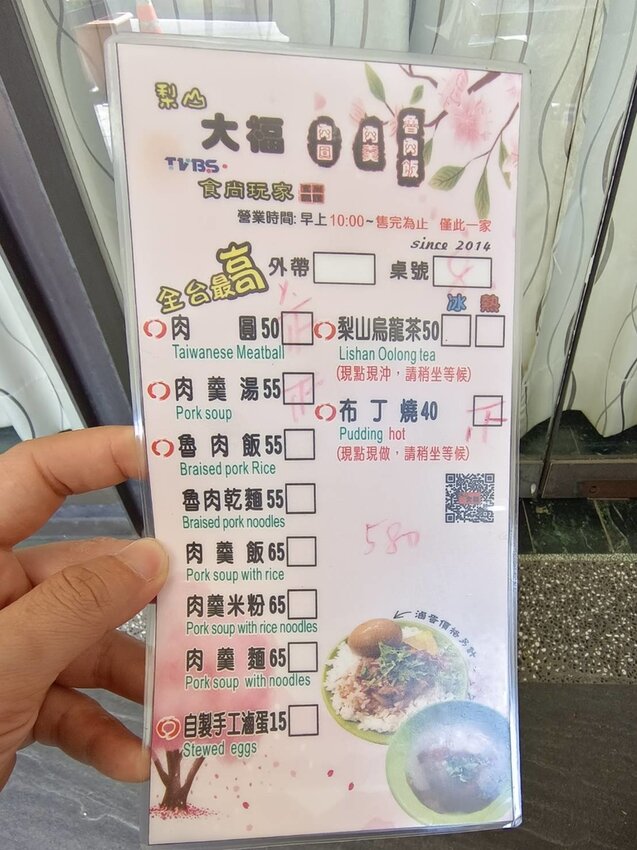 梨山
大福 肉圓 肉羹 魯肉飯
TVBS
食尚玩家
營業時間: 早上10:00~售完為止 僅此一家
since 2014
全台最高
外帶 桌號
冰 熱
肉圓50
Taiwanese Meatball
肉羹湯55
Pork soup
魯肉飯55
Braised pork Rice
魯肉乾麵55
Braised pork noodles
肉羹飯65
Pork soup with rice
肉羹米粉65
Pork soup with rice noodles
肉羹麵65
Pork soup with noodles
自製手工滷蛋15
Stewed eggs
梨山烏龍茶50
Lishan Oolong tea
(現點現沖，請稍坐等候)
布丁燒40
Pudding hot
(現點現做，請稍坐等候)
580
滷蛋價格另計